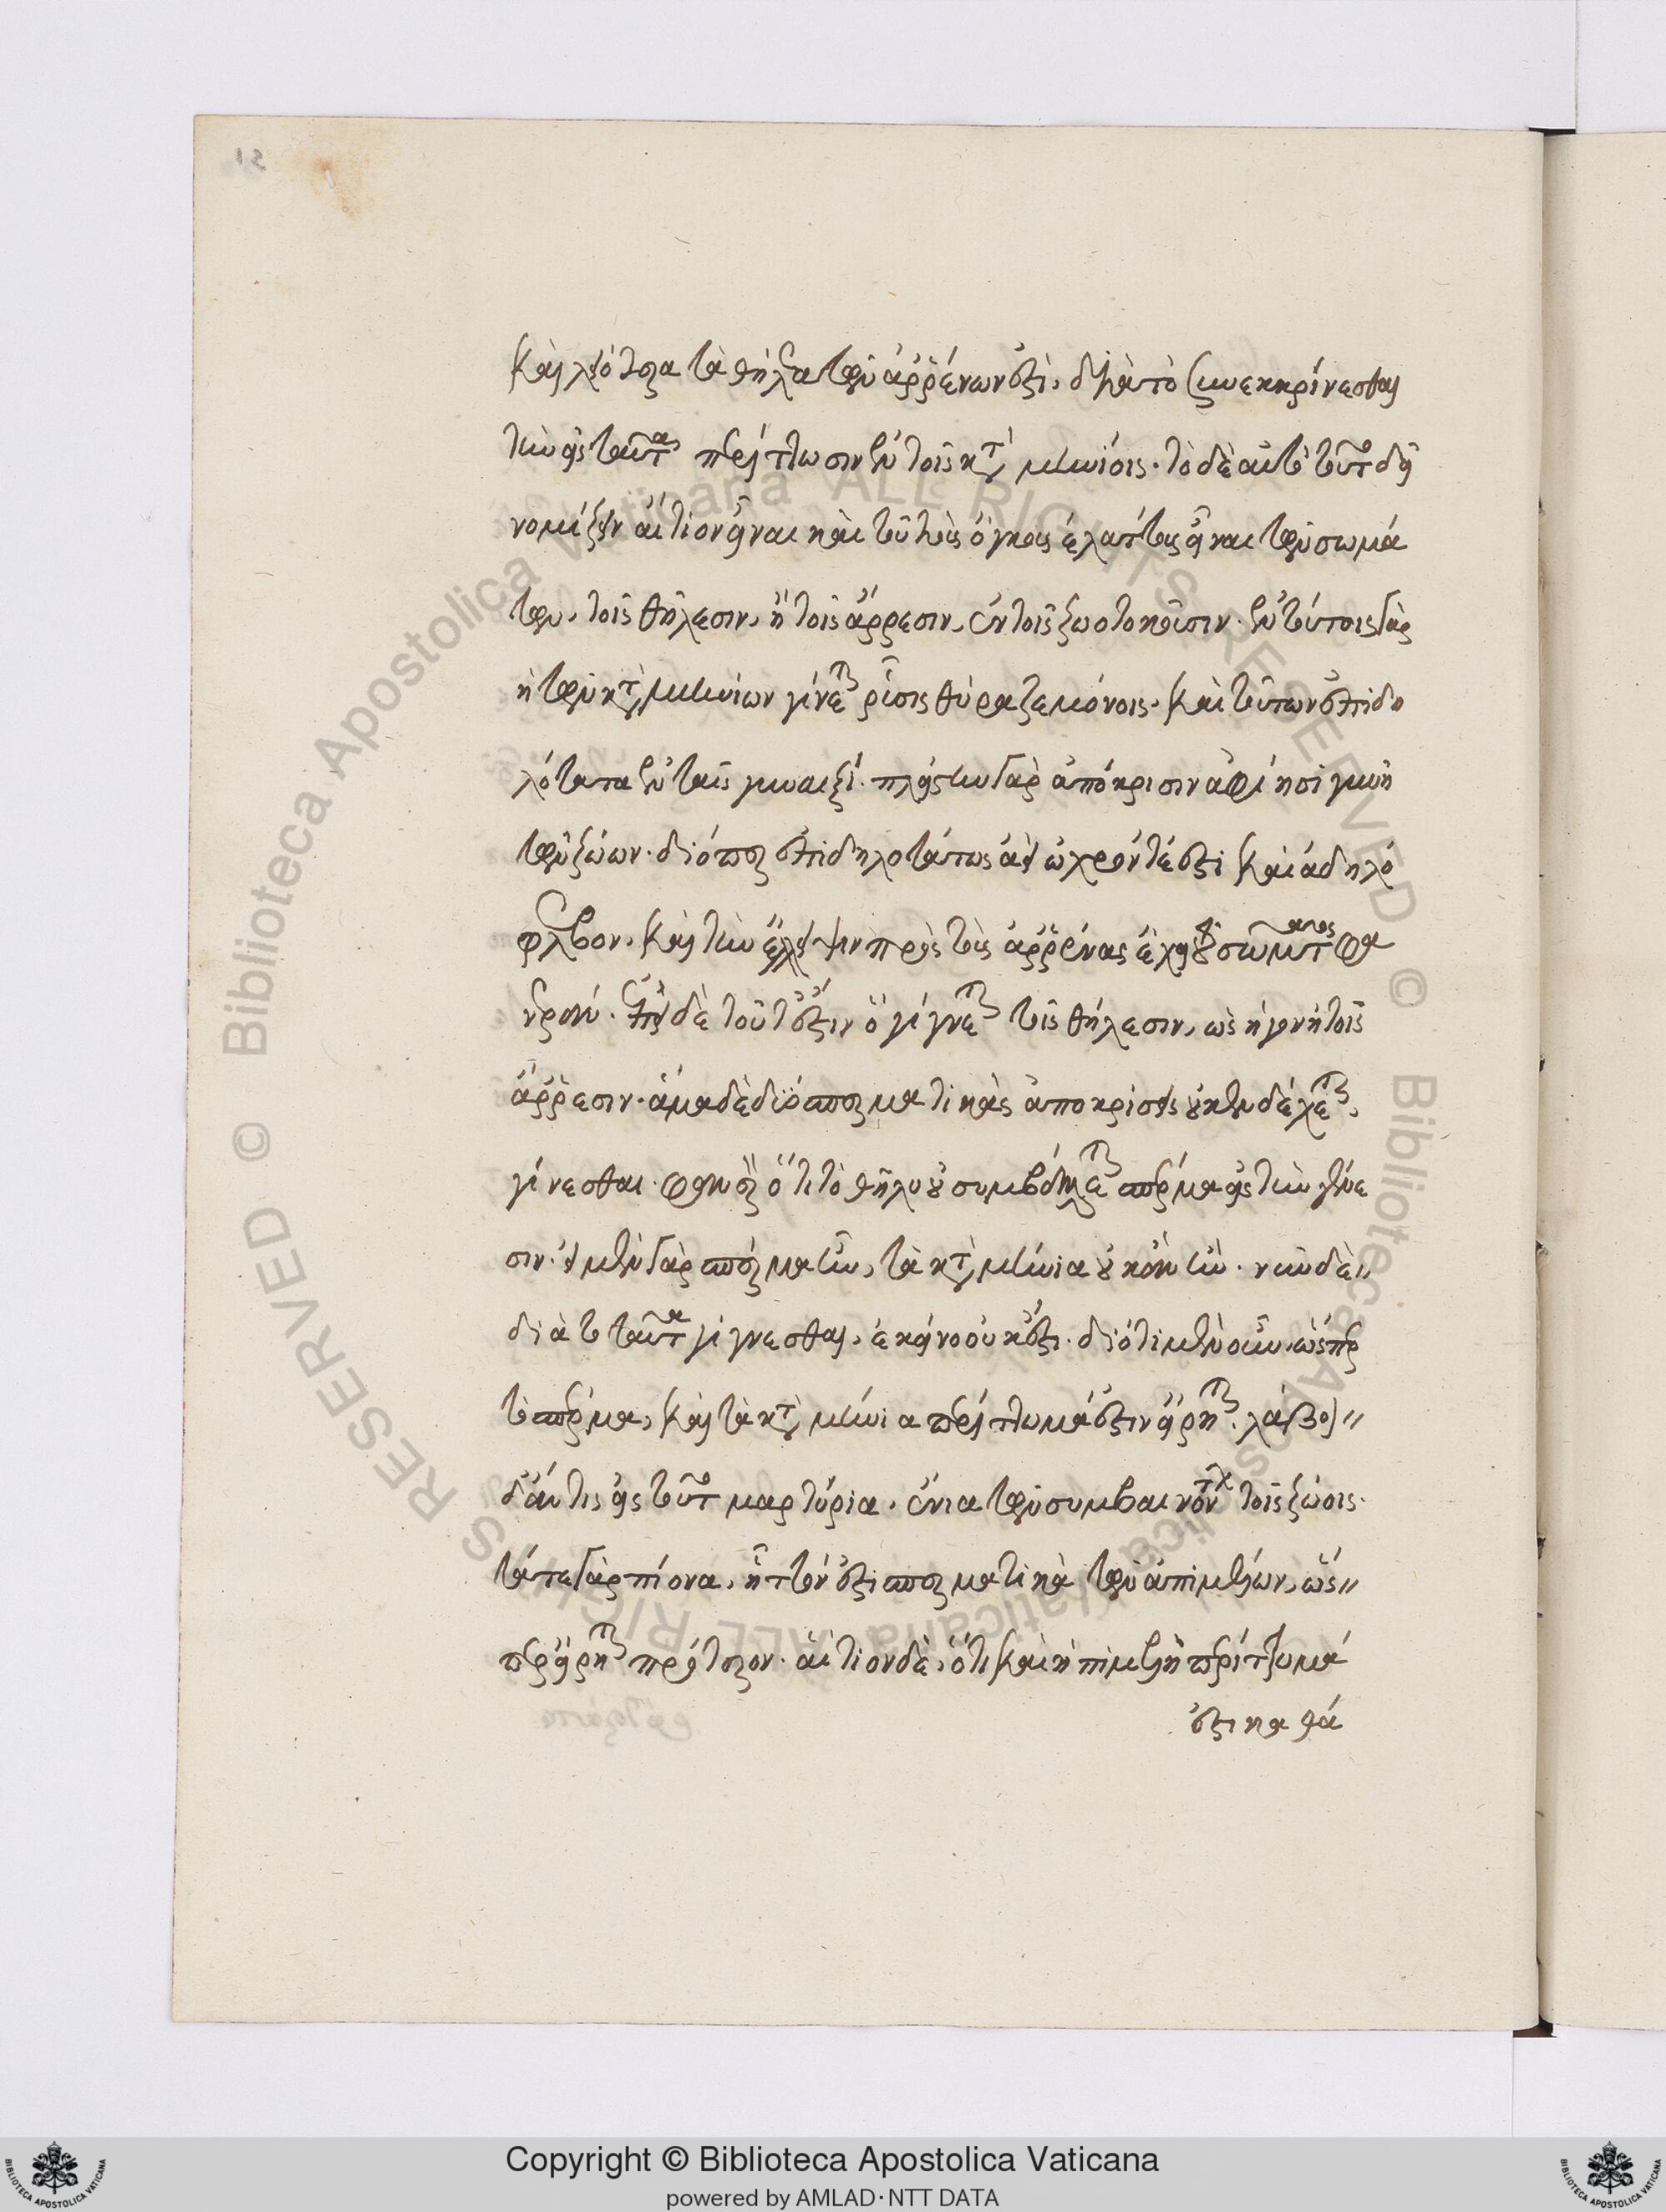 καὶ λειότερα τὰ θήλεα τῶν ἀρρένων ἐστὶ, διὰ τὸ συνεκκρίνεσθαι
τὴν εἰς ταῦτα περίττωσιν ἐν τοῖς καταμηνίοις. τὸ δὲ αὐτὸ τοῦτο δεῖ
νομίζειν αἴτιον εἶναι καὶ τοῦ τοὺς ὄγκους ἐλάττους εἶναι τῶν σωμά
των, τοῖς θήλεσιν, ἢ τοῖς ἄρρεσιν, ἐν τοῖς ζωοτοκοῦσιν. ἐν τούτοις γὰρ
ἡ τῶν καταμηνίων γίνεται ῥύσις θύραζε μόνοις. καὶ τούτων ἐπιδη
λότατα ἐν ταῖς γυναιξί. πλείστην γὰρ ἀπόκρισιν ἀφίησι γυνὴ
τῶν ζώων. διόπερ ἐπιδηλοτάτως ἀεὶ ὠχρόν τέ ἐστι καὶ ἀδηλό
φλεβον. καὶ τὴν ἔλλειψιν πρὸς τοὺς ἄρρενας ἔχει τοῦ σώματος φα
νεράν. ἐπεὶ δὲ τοῦτ' ἔστιν ὃ γίγνεται τοῖς θήλεσιν, ὡς ἡ γονὴ τοῖς
ἄρρεσιν. ἅμα δὲ δύο σπερματικὰς ἀποκρίσεις οὐκ ἐνδέχεται,
γίνεσθαι. φανερὸν ὅτι τὸ θῆλυ οὐ συμβάλλεται σπέρμα εἰς τὴν γένε
σιν. εἰ μὲν γὰρ σπέρμα ἦν, τὰ καταμήνια οὐκ ἂν ἦν. νῦν δὲ
διὰ τὸ ταῦτα γίγνεσθαι, ἐκεῖνο οὐκ ἔστι. διότι μὲν οὖν, ὥσπερ
τὸ σπέρμα, καὶ τὰ καταμήνια περίττωμά ἐστιν εἴρηται. λάβοι
δ' ἄν τις εἰς τοῦτο μαρτύρια. ἔνια τῶν συμβαινόντων τοῖς ζώοις.
τά τε γὰρ πίονα, ἧττόν ἐστι σπερματικὰ τῶν ἀπιμέλων, ὥς
περ εἴρηται πρότερον. αἴτιον δὲ, ὅτι καὶ ἡ πιμελὴ περίττωμά
ἐστι καθά